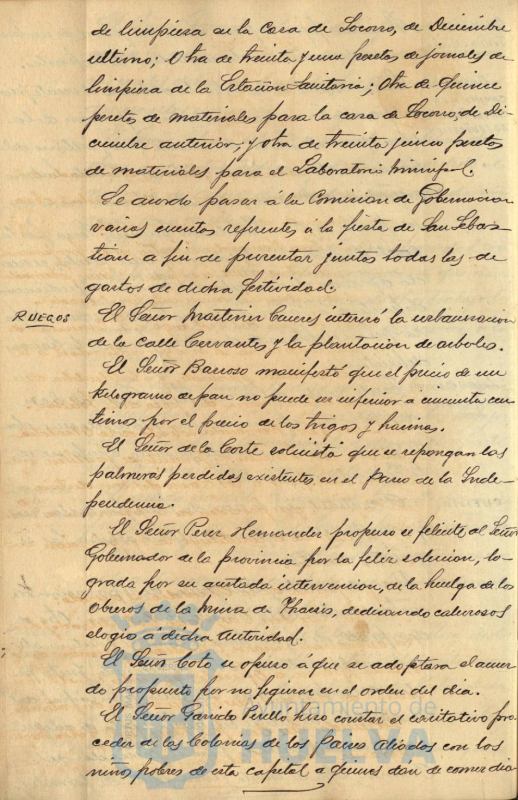 de limpieza en la Casa de Socorro, de Diciembre
ultimo; Otra de treinta y una pesetas de jornales de
limpieza de la Estación Sanitaria; Otra de quince
pesetas de materiales para la casa de Socorro, de Di-
ciembre anterior, y otra de treinta y cinco pesetas
de materiales para el Laboratorio Municipal.
Se acordo pasar á la Comision de Gobernacion
varias cuentas referentes á la fiesta de San Sebas-
tian a fin de presentar juntos todas las de
gastos de dicha festividad.
RUEGOS
El Señor Martinez Caceres interesó la urbanizacion
de la Calle Cervantes y la plantacion de arboles.
El Señor Barroso manifestó que el precio de un
kilogramo de pan no puede ser inferior a cincuenta cen-
timos por el precio de los trigos y harinas.
El Señor de la Corte solicitá que se repongan las
palmeras perdidas existentes en el Paseo de la Inde-
pendencia.
El Señor Perez Hernandez propuso se felicite al Señor
Gobernador de la provincia por la feliz solucion, lo-
grada por su acertada intervencion, de la huelga de los
Obreros de la Mina de Tharsis, dedicando calurosos
elogio á dicha Autoridad.
El Señor Coto se opuso á que se adoptara el acuer-
do propuesto por no figurar en el orden del dia.
El Señor Garrido Perelló hizo constar el caritativo pro-
ceder de las Colonias de los Paises Aliados con los
niños pobres de esta capital a quienes dán de comer dia-
Ayuntamiento de
HUELVA